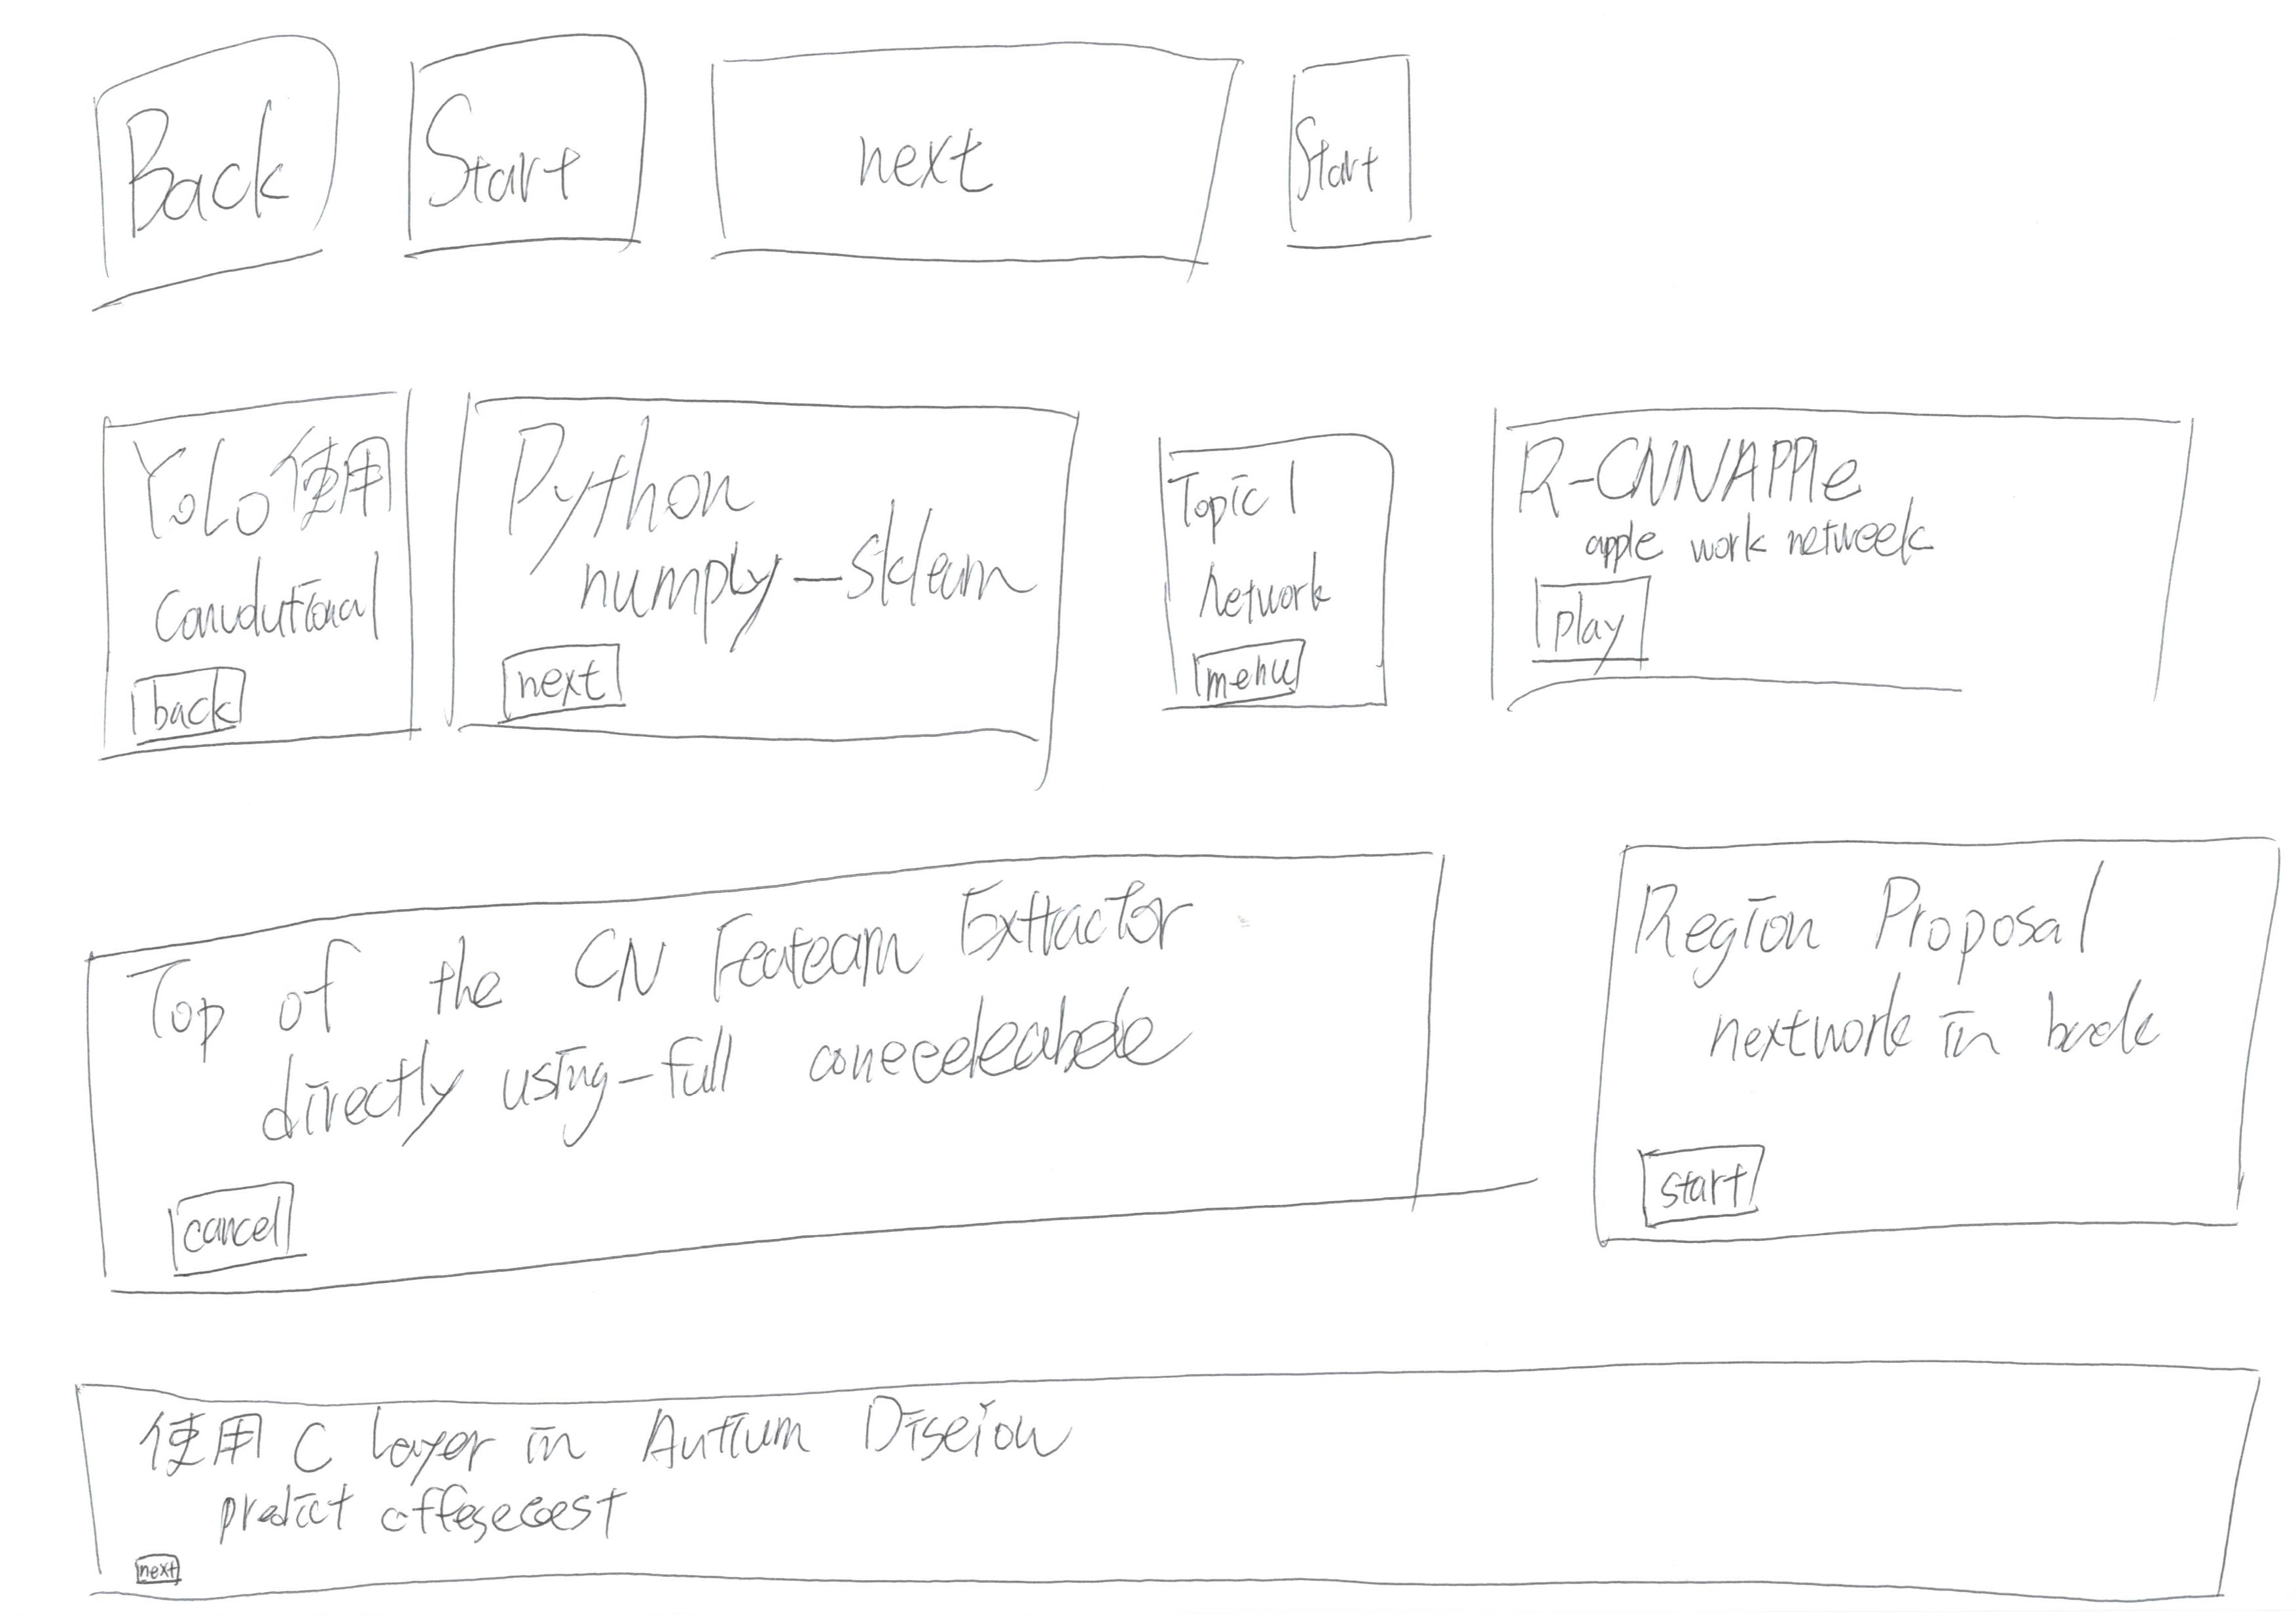 Back
Start
next
Start
YoLo使用
Conudutional
back
Python
numply-sklearn
next
Topic 1
Network
menu
R-CNNAPPle
apple work netweek
play
Top of the CN Extractor
directly using-full
cancel
Region Proposal
nextwork in
start
使用 C layer in Autium Diseiou
predict
next